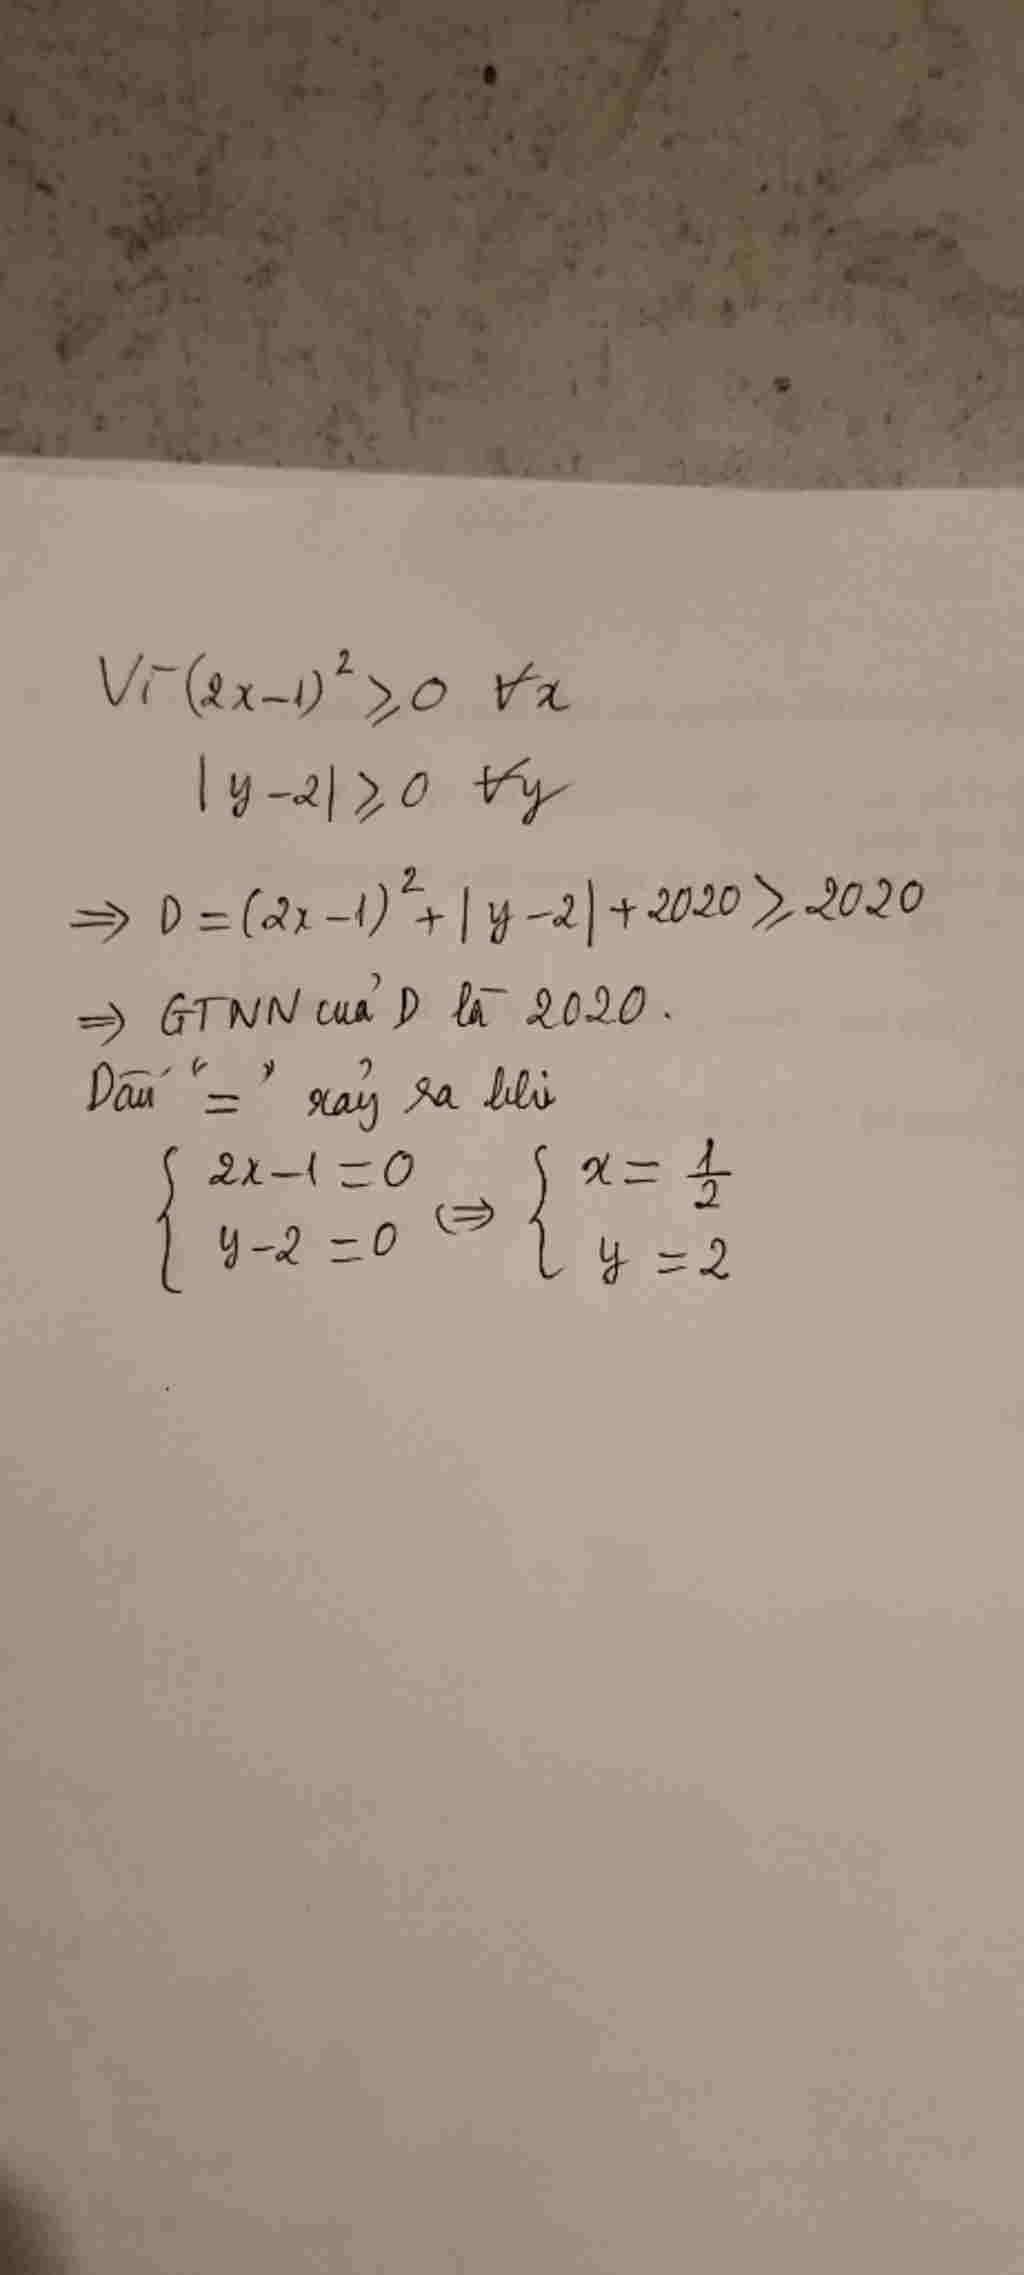 Vì (2x-1)² ⩾ 0 ∀x
|y-2| ⩾ 0 ∀y
⇒ D = (2x-1)² + |y-2| + 2020 ⩾ 2020
⇒ GTNN của D là 2020.
Dấu "=" xảy ra khi
{ 2x-1=0 ⇔ { x = 1/2
y-2=0 y = 2